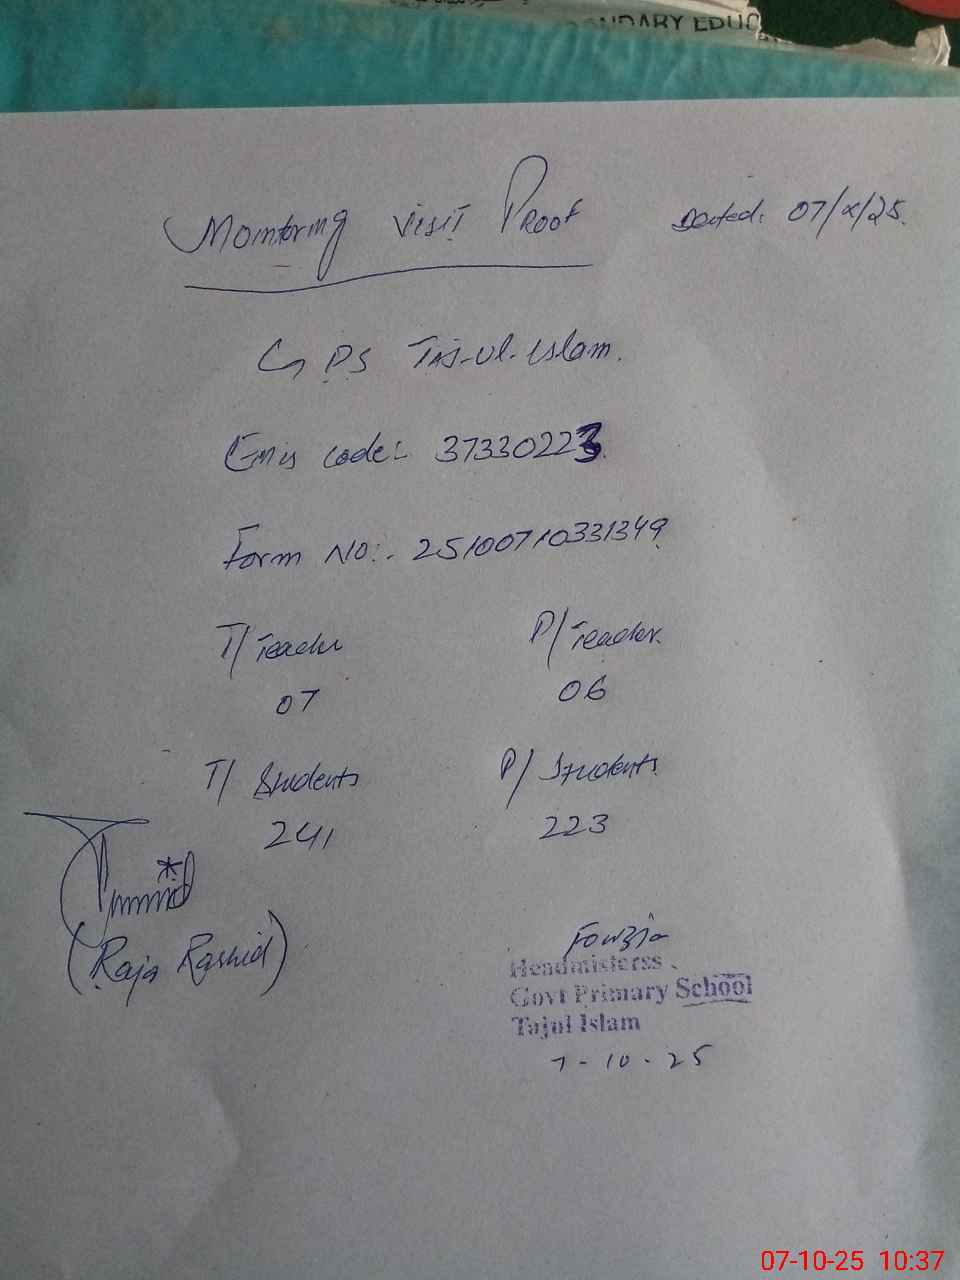 NDARY EDUC
Monitoring Visit Proof Dated: 07/X/25.
G PS Taj-ul-Islam.
Emis code:- 37330223.
Form No:- 25100710331349
T/Teacher P/Teacher.
07 06
T/Students P/Students
241 223
(Raja Rashid)
Fouzia
Headmisterss
Govt Primary School
Tajul Islam
7-10-25
07-10-25 10:37